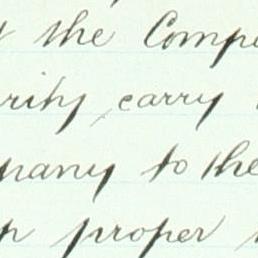 the Compa
rity, carry
pany to the
proper